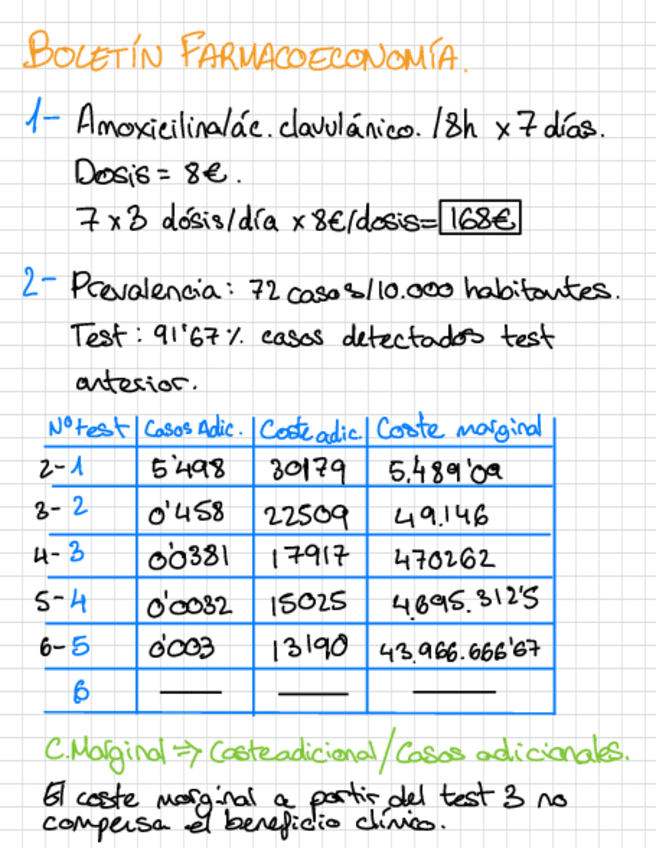 BOLETÍN FARMACOECONOMÍA.
1- Amoxicilina/ác. clavulánico. /8h x 7 días.
Dosis = 8€.
7 x 3 dósis/día x 8€/dosis= 168€
2- Prevalencia: 72 casos/10.000 habitantes.
Test: 91'67% casos detectados test
anterior.
Nº test Casos Adic. Coste adic. Coste marginal
2-1 5'498 30179 5.489'09
3-2 0'458 22509 49.146
4-3 0'0381 17917 470262
5-4 0'0032 15025 4.695.312'5
6-5 0'003 13190 43.966.666'67
6 — — —
C.Marginal => Coste adicional/Casos adicionales.
El coste marginal a partir del test 3 no
compensa el beneficio clínico.